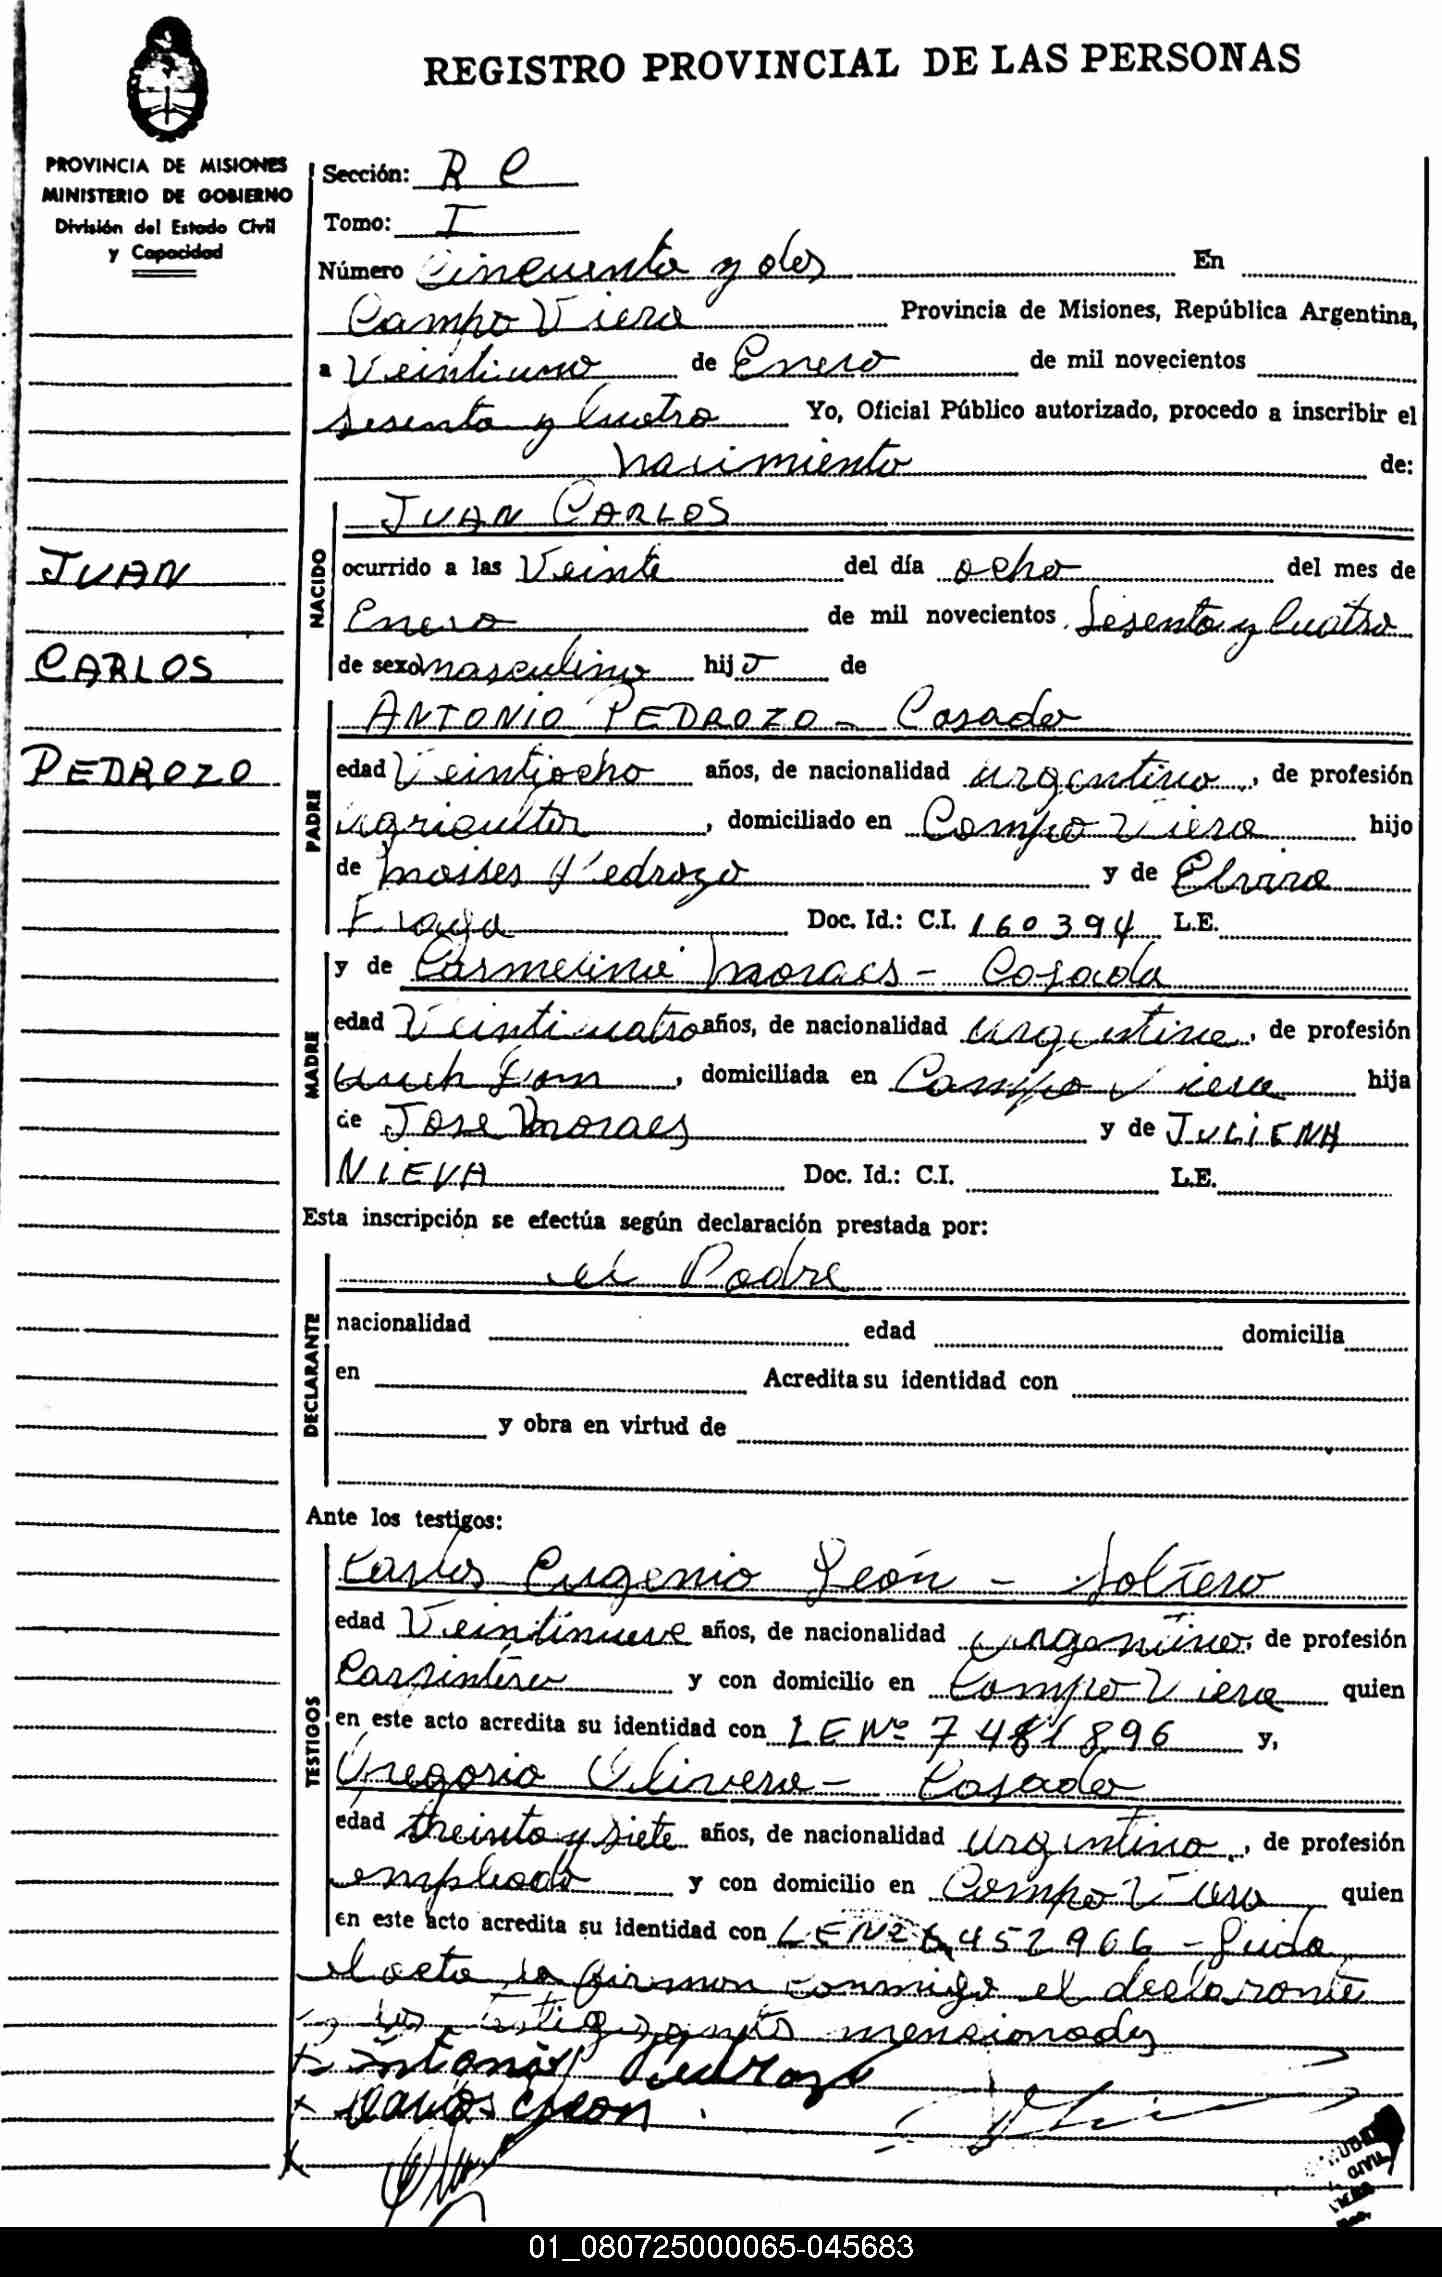 REGISTRO PROVINCIAL DE LAS PERSONAS
PROVINCIA DE MISIONES
MINISTERIO DE GOBIERNO
División del Estado Civil
y Capacidad
JUAN
CARLOS
PEDROZO
Sección: R C
Tomo: I
Número Cincuenta y dos En
Campo Viera Provincia de Misiones, República Argentina,
a Veintiuno de Enero de mil novecientos
sesenta y cuatro Yo, Oficial Público autorizado, procedo a inscribir el
nacimiento de:
NACIDO
JUAN CARLOS
ocurrido a las Veinte del día ocho del mes de
Enero de mil novecientos Sesenta y Cuatro
de sexo masculino hijo de
PADRE
ANTONIO PEDROZO - Casado
edad Veintiocho años, de nacionalidad argentino, de profesión
agricultor, domiciliado en Campo Viera hijo
de Moises Pedrozo y de Elvira
Fraga Doc. Id.: C.I. 160394 L.E.
MADRE
y de Carmelina Moraes - Casada
edad Veinticuatro años, de nacionalidad argentina, de profesión
, domiciliada en Campo Viera hija
de Jose Moraes y de JULIENA
NIEVA Doc. Id.: C.I. L.E.
Esta inscripción se efectúa según declaración prestada por:
DECLARANTE
el Padre
nacionalidad edad domicilia
en Acredita su identidad con
y obra en virtud de
Ante los testigos:
TESTIGOS
Carlos Eugenio León - Soltero
edad Veintinueve años, de nacionalidad argentino, de profesión
Carpintero y con domicilio en Campo Viera quien
en este acto acredita su identidad con LE Nº 7481896 y,
Gregorio Olivera - Casado
edad treinta y siete años, de nacionalidad argentino, de profesión
empleado y con domicilio en Campo Viera quien
en este acto acredita su identidad con LE Nº 6.452966 - Leida
el acta la firman conmigo el declarante
y los testigos antes mencionados
Antonio Pedrozo
Carlos E Leon
01_080725000065-045683